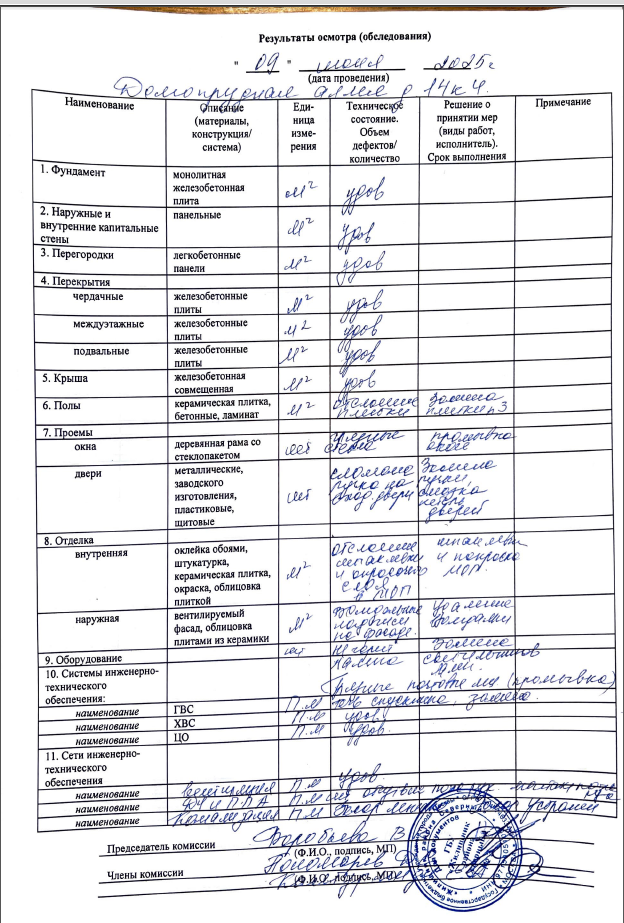 Результаты осмотра (обеледования)
" 09 " июня 2025г
(дата проведения)
Долгопрудная аллея д 14к4.
Наименование Описание (материалы, конструкция/ система) Еди- ница изме- рения Техническое состояние. Объем дефектов/ количество Решение о принятии мер (виды работ, исполнитель). Срок выполнения Примечание
1. Фундамент монолитная железобетонная плита м² удов
2. Наружные и внутренние капитальные стены панельные м² удов
3. Перегородки легкобетонные панели м² удов
4. Перекрытия
чердачные железобетонные плиты м² удов
междуэтажные железобетонные плиты м² удов
подвальные железобетонные плиты м² удов
5. Крыша железобетонная совмещенная м² удов
6. Полы керамическая плитка, бетонные, ламинат м² отслоение плитки замена плитки
7. Проемы
окна деревянная рама со стеклопакетом шт грязные стекла промывка окон
двери металлические, заводского изготовления, пластиковые, щитовые шт сломана ручка на вход двери Замена ручки, смазка петель дверей
8. Отделка
внутренняя оклейка обоями, штукатурка, керамическая плитка, окраска, облицовка плиткой м² отслоение шпаклевки и окрасочного слоя в МОП шпаклевка и покраска МОП.
наружная вентилируемый фасад, облицовка плитами из керамики м² Вандальные надписи на фасаде. удаление
9. Оборудование шт не горит лампа Замена светильников
10. Системы инженерно- технического обеспечения: Грязные (промывка)
наименование ГВС П.м замена.
наименование ХВС П.м удов.
наименование ЦО П.м удов.
11. Сети инженерно- технического обеспечения удов.
наименование вентиляция П.м
наименование ДУ и ППА П.м
наименование Канализация П.м
Председатель комиссии Воробьева В
(Ф.И.О., подпись, МП)
Члены комиссии Пономарев
(Ф.И.О., подпись, МП)